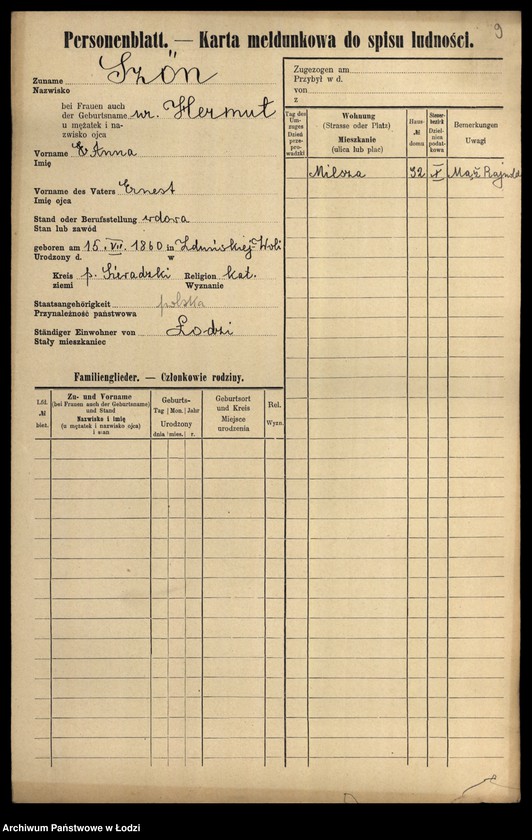 9
Personenblatt. — Karta meldunkowa do spisu ludności.
Zuname Szön
Nazwisko
bei Frauen auch
der Geburtsname ur. Hermut
u mężatek i na-
zwisko ojca
Vorname Anna
Imię
Vorname des Vaters Ernest
Imię ojca
Stand oder Berufsstellung wdowa
Stan lub zawód
geboren am 15. VII. 1860 in Zduńskiej-Woli
Urodzony d. w
Kreis p. Sieradzki Religion kat.
ziemi Wyznanie
Staatsangehörigkeit polska
Przynależność państwowa
Ständiger Einwohner von Łodzi
Stały mieszkaniec
Zugezogen am
Przybył w d.
von
z
Tag des Um-zuges Dzień prze-pro-wadzki
Wohnung
(Strasse oder Platz)
Mieszkanie
(ulica lub plac)
Haus-
№
domu
Steuer-bezirk Dziel-nica podat-kowa
Bemerkungen
Uwagi
Milsza 32 X Mąż
Familienglieder. — Członkowie rodziny.
Lfd.
№
bież.
Zu- und Vorname
(bei Frauen auch der Geburtsname)
und Stand
Nazwisko i imię
(u mężatek i nazwisko ojca)
i stan
Geburts-
Tag Mon. Jahr
Urodzony
dnia mies. r.
Geburtsort
und Kreis
Miejsce
urodzenia
Rel.
Wyzn.
Archiwum Państwowe w Łodzi